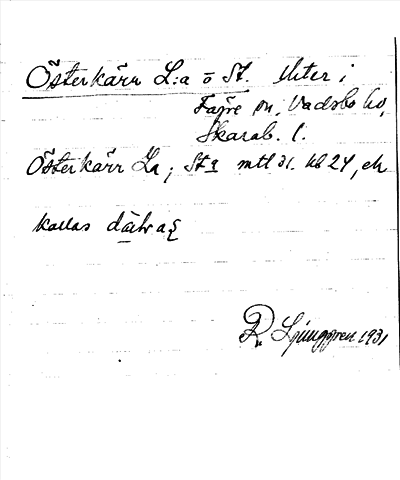 Österkärr L:a o St. Uter i
Färe sn, Vadsbo hd,
Skarab. l.
Österkärr La, Sta mtl 31. hb 24, ek
kallas
R. Ljunggren 1931